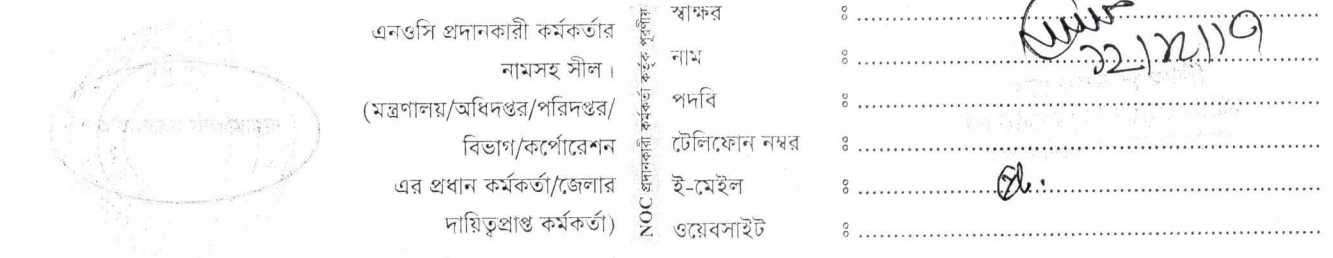 এনওসি প্রদানকারী কর্মকর্তার
নামসহ সীল।
(মন্ত্রণালয়/অধিদপ্তর/পরিদপ্তর/
বিভাগ/কর্পোরেশন
এর প্রধান কর্মকর্তা/জেলার
দায়িত্বপ্রাপ্ত কর্মকর্তা)
NOC প্রদানকারী কর্মকর্তা কর্তৃক পূরণীয়
স্বাক্ষর ঃ
নাম ঃ
পদবি ঃ
টেলিফোন নম্বর ঃ
ই-মেইল ঃ
ওয়েবসাইট ঃ